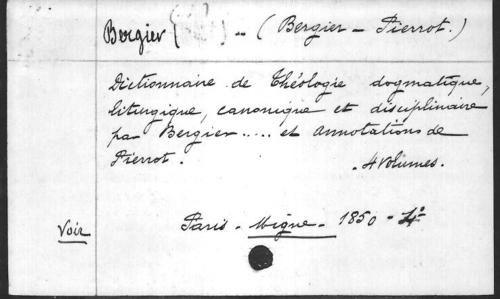 Bergier { } -- (Bergier - Pierrot.)
Dictionnaire de Théologie dogmatique,
liturgique, canonique et disciplinaire
par Bergier ..... et annotations de
Pierrot. - 4 Volumes.
Paris - Migne - 1850 - 4°
Voir